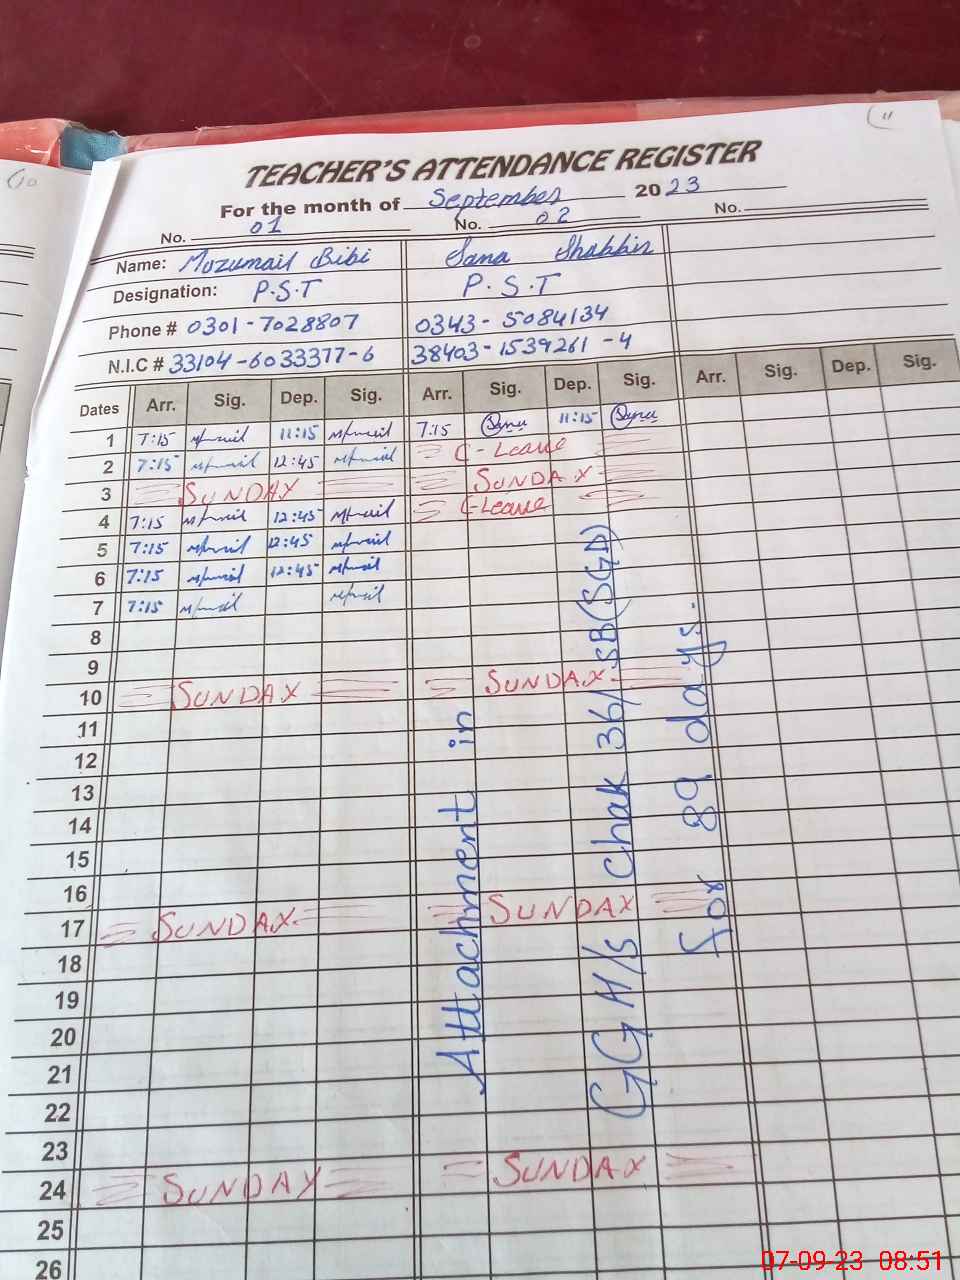 11
10
TEACHER'S ATTENDANCE REGISTER
For the month of September 2023
No. 01 No. 02 No.
Name: Muzumail Bibi Sana Shabbir
Designation: P.S.T P.S.T
Phone # 0301-7028807 0343-5084134
N.I.C # 33104-6033377-6 38403-1539261-4
Dates Arr. Sig. Dep. Sig. Arr. Sig. Dep. Sig. Arr. Sig. Dep. Sig.
1 7:15 11:15 7:15 11:15
2 7:15 12:45 C-Leave
3 SUNDAY SUNDAY
4 7:15 12:45 C-Leave
5 7:15 12:45
6 7:15 12:45
7 7:15
8
9
10 SUNDAY SUNDAY
11
12
13
14
15
16
17 SUNDAY SUNDAY
18
19
20
21
22
23
24 SUNDAY SUNDAY
25
26
Attachment in
GGH/S Chak 36/SB(SGD)
for 89 days.
07-09-23 08:51